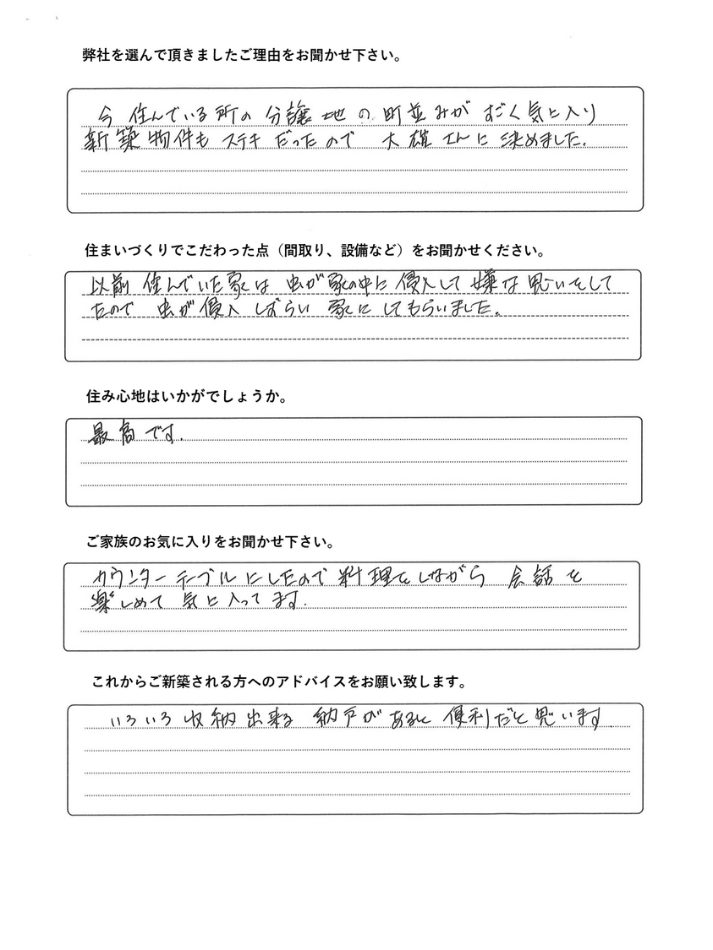 弊社を選んで頂きましたご理由をお聞かせ下さい。
今 住んでいる所の 分譲 地 の 町並みが すごく 気に入り
新築物件も ステキ だったので 大雄 さんに 決めました.
住まいづくりでこだわった点（間取り、設備など）をお聞かせください。
以前 住んでいた家は 虫が家の中に 侵入して 嫌な思いをして
たので 虫が 侵入 しずらい 家に してもらいました。
住み心地はいかがでしょうか。
最高です.
ご家族のお気に入りをお聞かせ下さい。
カウンターテーブルにしたので 料理をしながら 会話を
楽しめて 気に入ってます.
これからご新築される方へのアドバイスをお願い致します。
いろいろ 収納 出来る 納戸が あると 便利だと思います